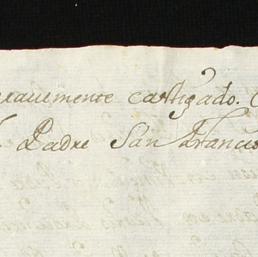 gravemente castigado.
Padre San Francis